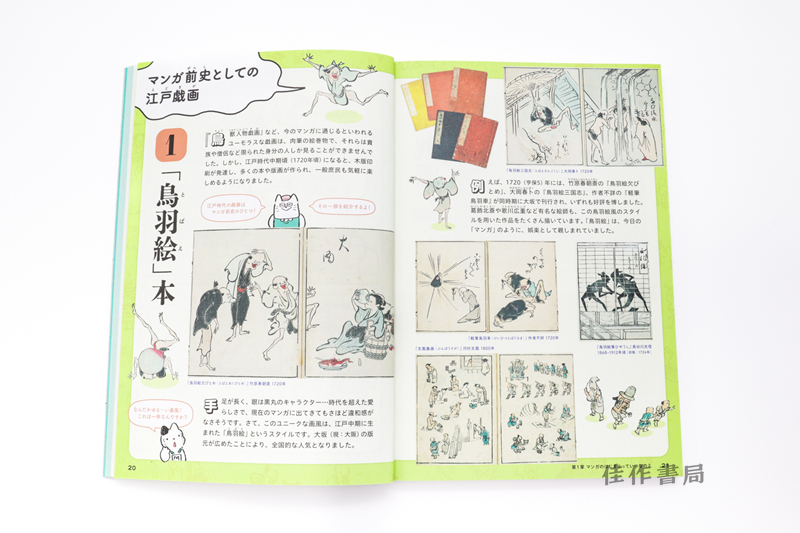 マンガ前史としての
江戸戯画
1
「鳥羽絵」本
とばえ
『鳥獣人物戯画』など、今のマンガに通じるといわれる
ユーモラスな戯画は、肉筆の絵巻物で、それらは貴
族や僧侶など限られた身分の人しか見ることができませんで
した。しかし、江戸時代中期頃(1720年頃)になると、木版印
刷が発達し、多くの本や版画が作られ、一般庶民も気軽に楽
しめるようになりました。
江戸時代の戯画は、
マンガの前史なひとつ!
その一部を紹介するよ!
大
『鳥羽絵欠びとめ』竹原春朝斎 1720年
手足が長く、眼は黒丸のキャラクター…時代を超えた愛
らしさで、現在のマンガに出てきてもさほど違和感が
なさそうです。さて、このユニークな画風は、江戸中期に生
まれた「鳥羽絵」というスタイルです。大坂(現：大阪)の版
元が広めたことにより、全国的な人気となりました。
20
『鳥羽絵三国志』 大岡春卜 1720年
例えば、1720(亨保5)年には、竹原春朝斎の『鳥羽絵欠び
とめ』、大岡春卜の『鳥羽絵三国志』、作者不詳の『軽筆
鳥羽車』が同時期に大坂で刊行され、いずれも好評を博しました。
葛飾北斎や歌川広重など有名な絵師も、この鳥羽絵風のスタイ
ルを用いた作品をたくさん描いています。「鳥羽絵」は、今日の
「マンガ」のように、娯楽として親しまれていました。
『軽筆鳥羽車』 作者不詳 1720年
第1章 マンガの
21
佳作書局